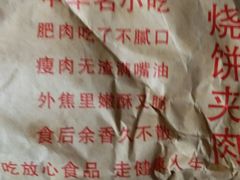 中华名小吃
肥肉吃了不腻口
瘦肉无渣满嘴油
外焦里嫩酥又脆
食后余香久不散
吃放心食品 走健康人生
烧饼夹肉